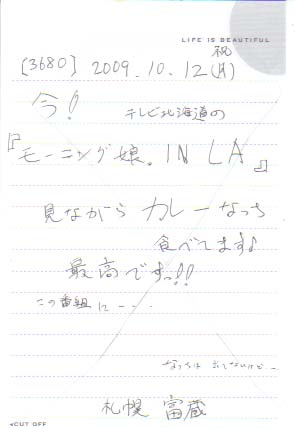 LIFE IS BEAUTIFUL
祝
[3680] 2009.10.12(月)
今! テレビ北海道の
『モーニング娘。IN LA』
見ながら カレーなっち
食べてます♪
最高ですっ!!
この番組に---
なっちは 出てないけど--
札幌 富蔵
◂CUT OFF